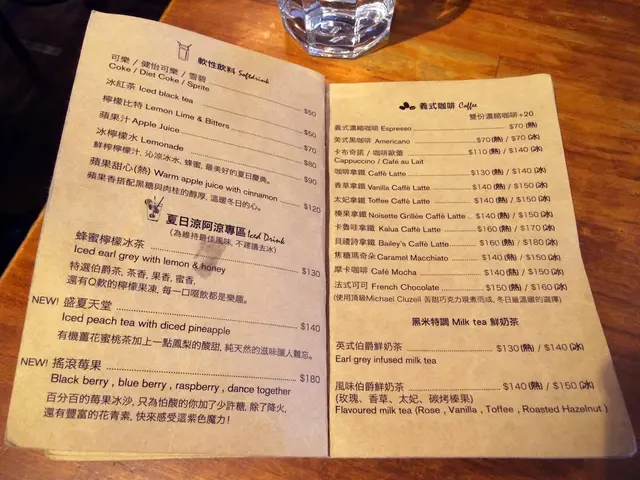 軟性飲料 Softdrink
可樂 / 健怡可樂 / 雪碧
Coke / Diet Coke / Sprite $50
冰紅茶 Iced black tea $50
檸檬比特 Lemon Lime & Bitters $50
蘋果汁 Apple Juice $70
冰檸檬水 Lemonade $80
鮮榨檸檬汁, 沁涼冰水, 蜂蜜, 最美好的夏日慶典。
蘋果甜心(熱) Warm apple juice with cinnamon $90
蘋果香搭配黑糖與肉桂的醇厚, 溫暖冬日的心。 $120
夏日涼阿涼專區 Iced Drink
(為維持最佳風味, 不建議去冰)
蜂蜜檸檬冰茶
Iced earl grey with lemon & honey $130
特選伯爵茶, 茶香, 果香, 蜜香,
還有Q軟的檸檬果凍, 每一口咽飲都是樂趣。
NEW! 盛夏天堂 $140
Iced peach tea with diced pineapple
有機薑花蜜桃茶加上一點鳳梨的酸甜, 純天然的滋味讓人難忘。
NEW! 搖滾莓果 $180
Black berry , blue berry , raspberry , dance together
百分百的莓果冰沙, 只為怕酸的你加了少許糖, 除了降火,
還有豐富的花青素, 快來感受這紫色魔力!
義式咖啡 Coffee
雙份濃縮咖啡+20
義式濃縮咖啡 Espresso $70 (熱)
美式黑咖啡 Americano $70 (熱) / $70 (冰)
卡布奇諾 / 咖啡歐蕾 $110 (熱) / $140 (冰)
Cappuccino / Café au Lait
咖啡拿鐵 Caffè Latte $130 (熱) / $140 (冰)
香草拿鐵 Vanilla Caffè Latte $140 (熱) / $150 (冰)
太妃拿鐵 Toffee Caffè Latte $140 (熱) / $150 (冰)
榛果拿鐵 Noisette Grillée Caffè Latte $140 (熱) / $150 (冰)
卡魯哇拿鐵 Kalua Caffè Latte $160 (熱) / $170 (冰)
貝禮詩拿鐵 Bailey's Caffè Latte $160 (熱) / $180 (冰)
焦糖瑪奇朵 Caramel Macchiato $140 (熱) / $150 (冰)
摩卡咖啡 Café Mocha $140 (熱) / $150 (冰)
法式可可 French Chocolate $150 (熱) / $160 (冰)
(使用頂級Michael Cluzeil 苦甜巧克力現煮而成, 冬日最溫暖的選擇)
黑米特調 Milk tea 鮮奶茶
英式伯爵鮮奶茶 $130 (熱) / $140 (冰)
Earl grey infused milk tea
風味伯爵鮮奶茶 $140 (熱) / $150 (冰)
(玫瑰、香草、太妃、碳烤榛果)
Flavoured milk tea (Rose , Vanilla , Toffee , Roasted Hazelnut )